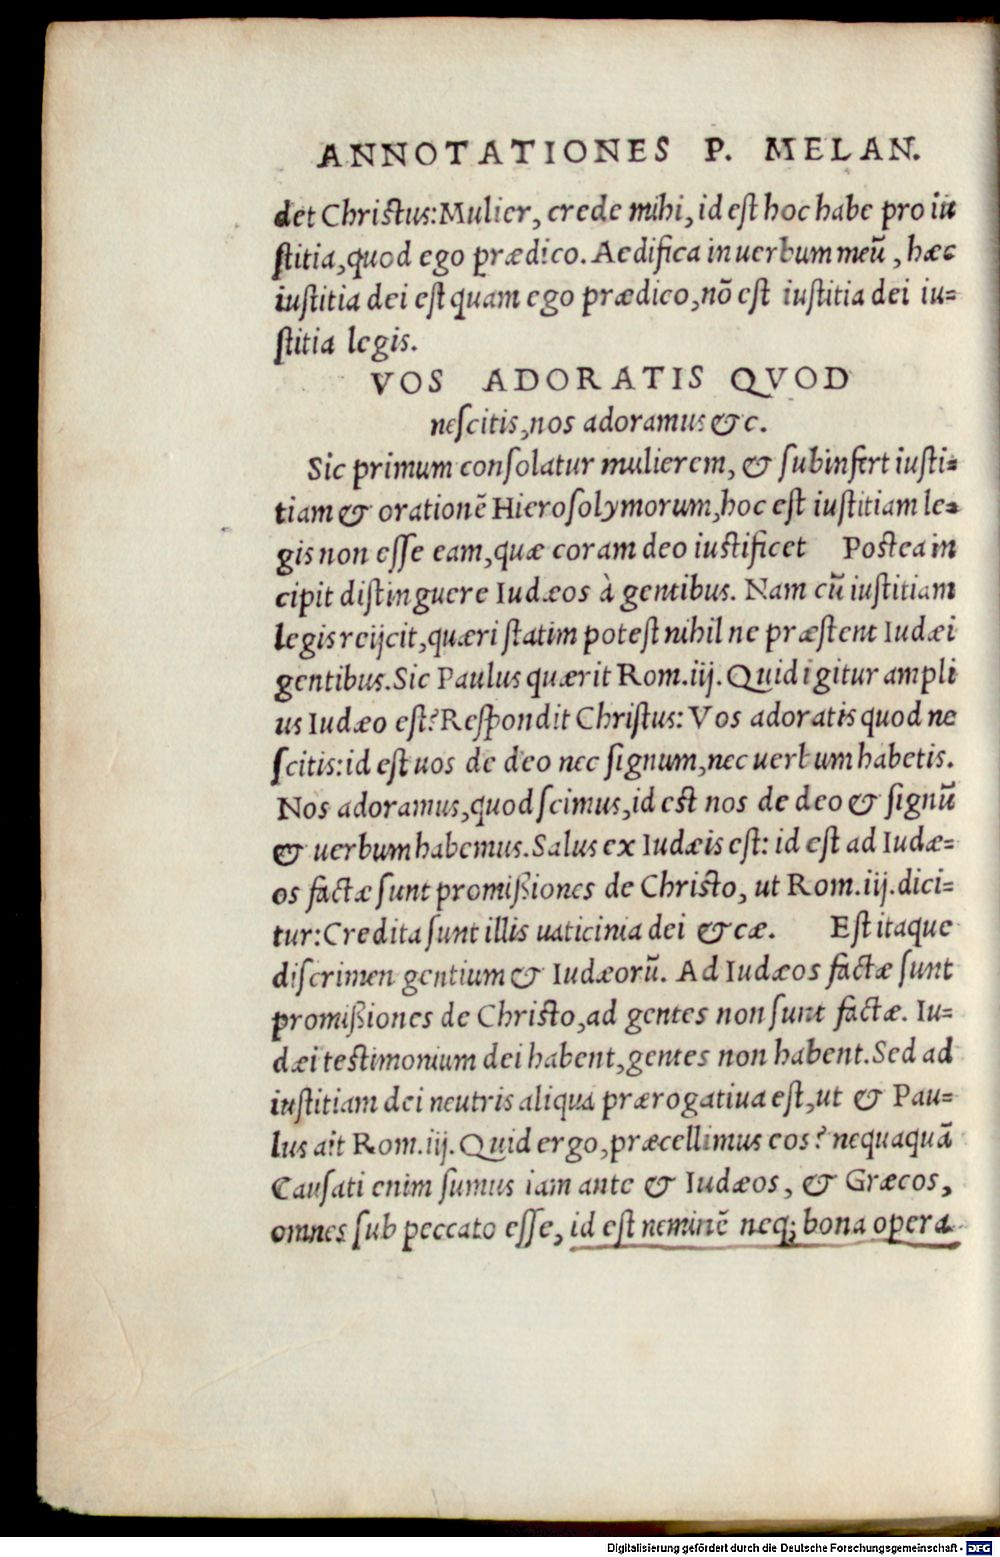 ANNOTATIONES P. MELAN.
det Christus: Mulier, crede mihi, id est hoc habe pro iu
stitia, quod ego prædico. Aedifica in uerbum meũ, hæc
iustitia dei est quam ego prædico, nõ est iustitia dei iu=
stitia legis.
VOS ADORATIS QVOD
nescitis, nos adoramus &c.
Sic primum consolatur mulierem, & subinfert iusti=
tiam & orationẽ Hierosolymorum, hoc est iustitiam le=
gis non esse eam, quæ coram deo iustificet Postea in
cipit distinguere Iudæos à gentibus. Nam cũ iustitiam
legis reijcit, quæri statim potest nihil ne præstent Iudæi
gentibus. Sic Paulus quærit Rom.iij. Quid igitur ampli
us Iudæo est? Respondit Christus: Vos adoratis quod ne
scitis: id est uos de deo nec signum, nec uerbum habetis.
Nos adoramus, quod scimus, id est nos de deo & signũ
& uerbum habemus. Salus ex Iudæis est: id est ad Iudæ=
os factæ sunt promißiones de Christo, ut Rom.iij. dici=
tur: Credita sunt illis uaticinia dei & cæ. Est itaque
discrimen gentium & Iudæorũ. Ad Iudæos factæ sunt
promißiones de Christo, ad gentes non sunt factæ. Iu=
dæi testimonium dei habent, gentes non habent. Sed ad
iustitiam dei neutris aliqua prærogatiua est, ut & Pau=
lus ait Rom.iij. Quid ergo, præcellimus eos? nequaquã
Causati enim sumus iam ante & Iudæos, & Græcos,
omnes sub peccato esse, id est neminẽ neq; bona opera
Digitalisierung gefördert durch die Deutsche Forschungsgemeinschaft - DFG